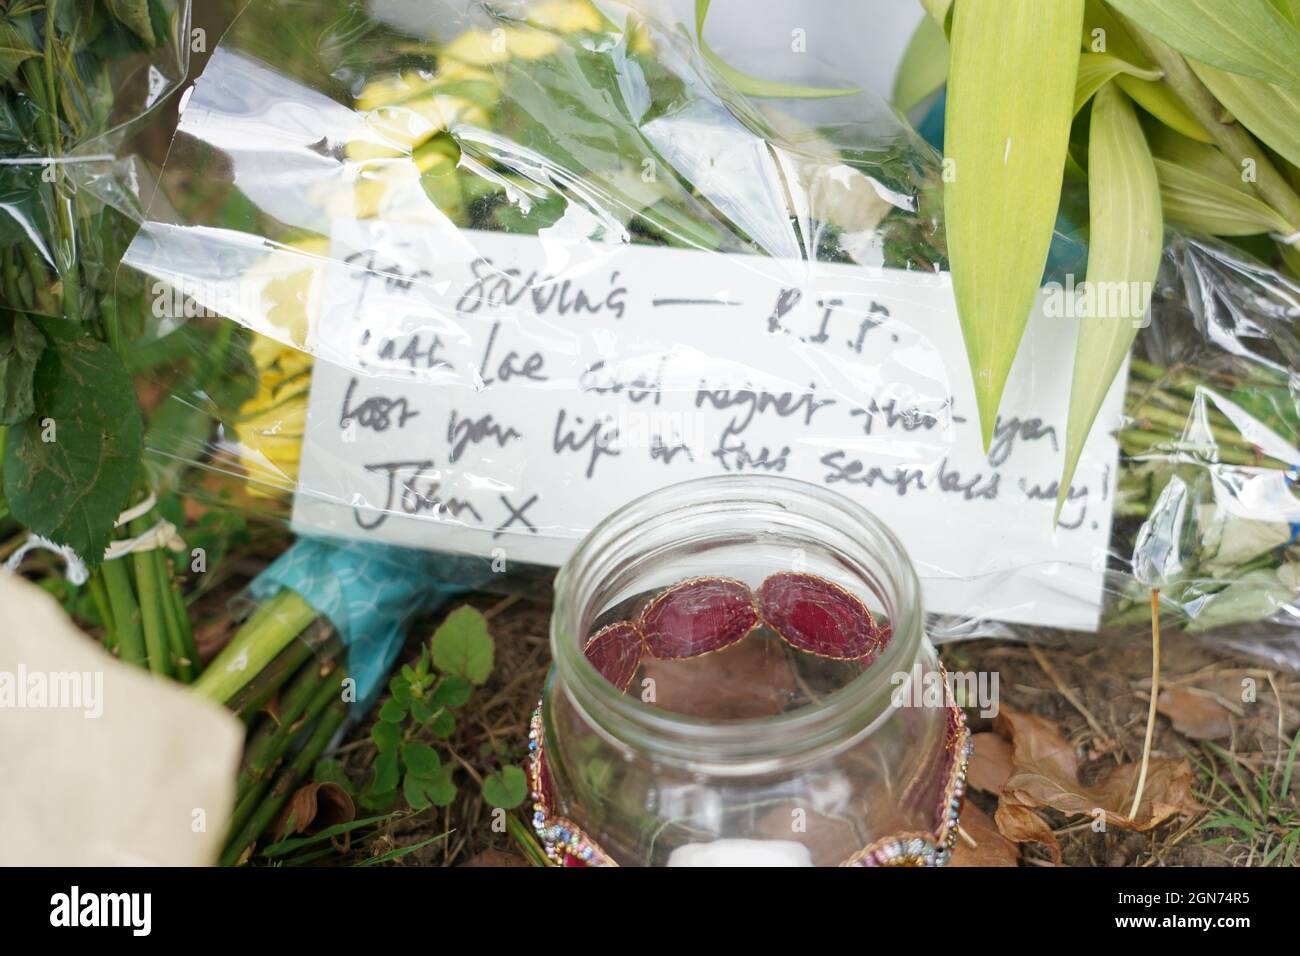 For Sabina — R.I.P.
with love and regret that you
lost your life in this senseless way!
John x
alamy
Image ID: 2GN74R5
www.alamy.com